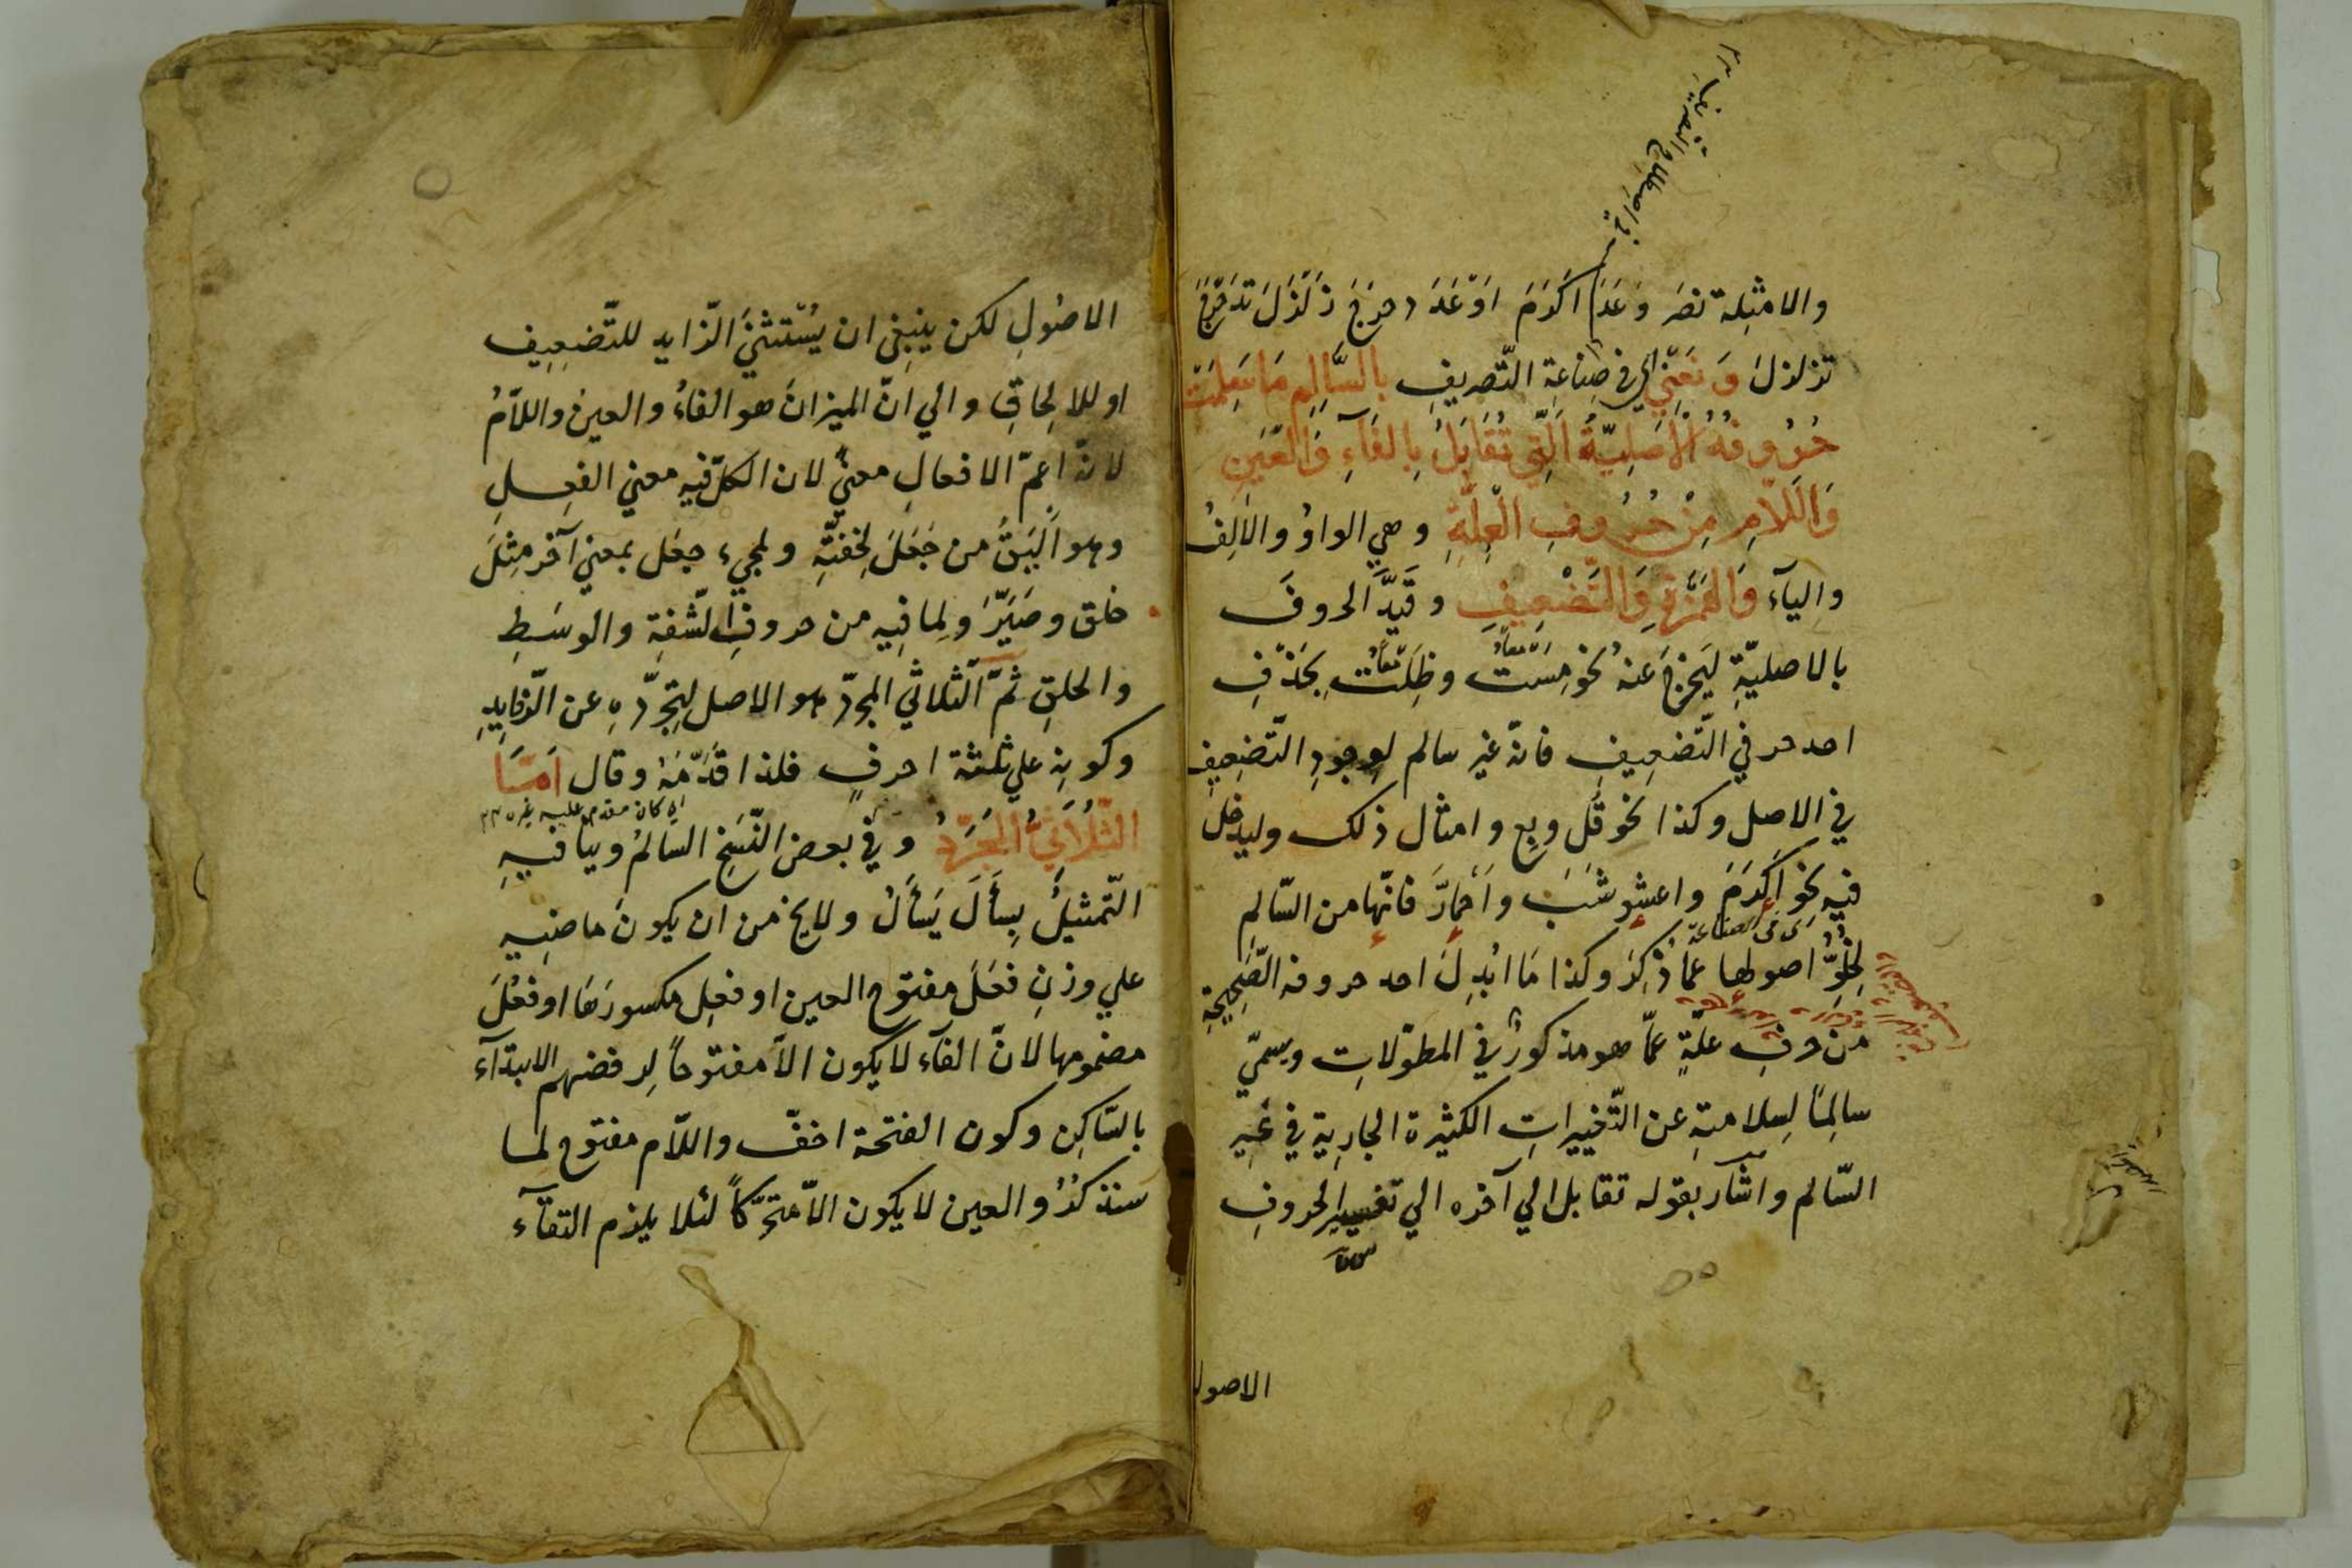 في اصطلاح التصريف
والامثِلة نصَر وَعَدَ اكَرَمَ اَوْعَدَ دحرَجَ زَلْزَلَ تدَحْرَجَ
تزلزلَ وَنَعْنِي اي في صِناعَةِ التّصريفِ بِالسَّالِمِ مَا سَلِمَتْ
حُرُوفُهُ الْاَصْلِيَّةُ الَّتِي تُقَابَلُ بِالفَآءِ وَالْعَيْنِ
وَاللَّامِ مِنْ حُرُوفِ الْعِلَّةِ وهي الواوُ والالِفُ
والياَء وَالهَمْزَةِ وَالتَّضْعِيفِ وقيّدَ الحروفَ
بالاصليّةِ ليَخرجَ عنهُ نحو مَسْتُ وظِلْتُ بحَذْفِ
احد حرفي التّضعِيفِ فانّهُ غير سالم لوجودِ التّضعِيفِ
في الاصِل وكذا نحو قُل وبِع وامثال ذلك وليدخل
فيهِ نحو اَكرَمَ واعشوشَبَ واَحْمارَّ فانّها من السّالم
لخُلُوِّ اصولها عما ذُكِرَ وكذا مَا ابُدِلَ احد حروفه الصّحِيحَةِ
اى في الصناعة
من حرفِ علّةٍ عمّا هو مذكورٌ في المطوّلاتِ ويسمّي
سالِمًا لِسلامتهِ عن التّغييراتِ الكثيرة الجارِية في غَيرِ
السّالم واشار بقوله تقابل الي آخره الي تفسيرِ الحروفِ
الاصول
الاصُولِ لكن ينبغي ان يُسْتثنَي الزّايد للتّضعِيف
او للالِحاقِ والي انّ الميزانَ هو الفاءُ والعين واللاّمُ
لانّهُ اعمّ الافعالِ معنيً لان الكلّ فيهِ معني الفِعلِ
وهو اَليَقُ من جَعَلَ لخفّتِهِ ولمجيء جعَل بمعني آخر مِثلَ
خلق وصَيَّرَ وَلِما فِيهِ من حروفِ الشّفِة والوسَطِ
والحلقِ ثمّ الثّلاثي المجرّد هو الاصل لتجرّدِهِ عن الزّوايدِ
وكونِهِ علي ثلثة احرفٍ فلذا قدّمَهُ وقال اَمَّا
الثّلَاثِيُّ المُجَرَّدُ وفي بعض النّسَخِ السّالمُ وينافيهِ
اي كان مقدم عليه غيره
التّمثيلُ بِسأَلَ يَسأَلُ ولا يخ من ان يكونَ ماضيهِ
علي وزنِ فعَلَ مفتوح العين او فعِل مكسورَهَا او فعُلَ
مضمومها لانّ الفآء لا يكون الاّ مفتوحاً لِرفضهم الابتدآء
بالسّاكِن وكون الفتحة اخفّ واللاّم مفتوح لما
سنذكرُهُ والعين لا يكون الاّ متحرّكاً لئلا يلزم التقآء